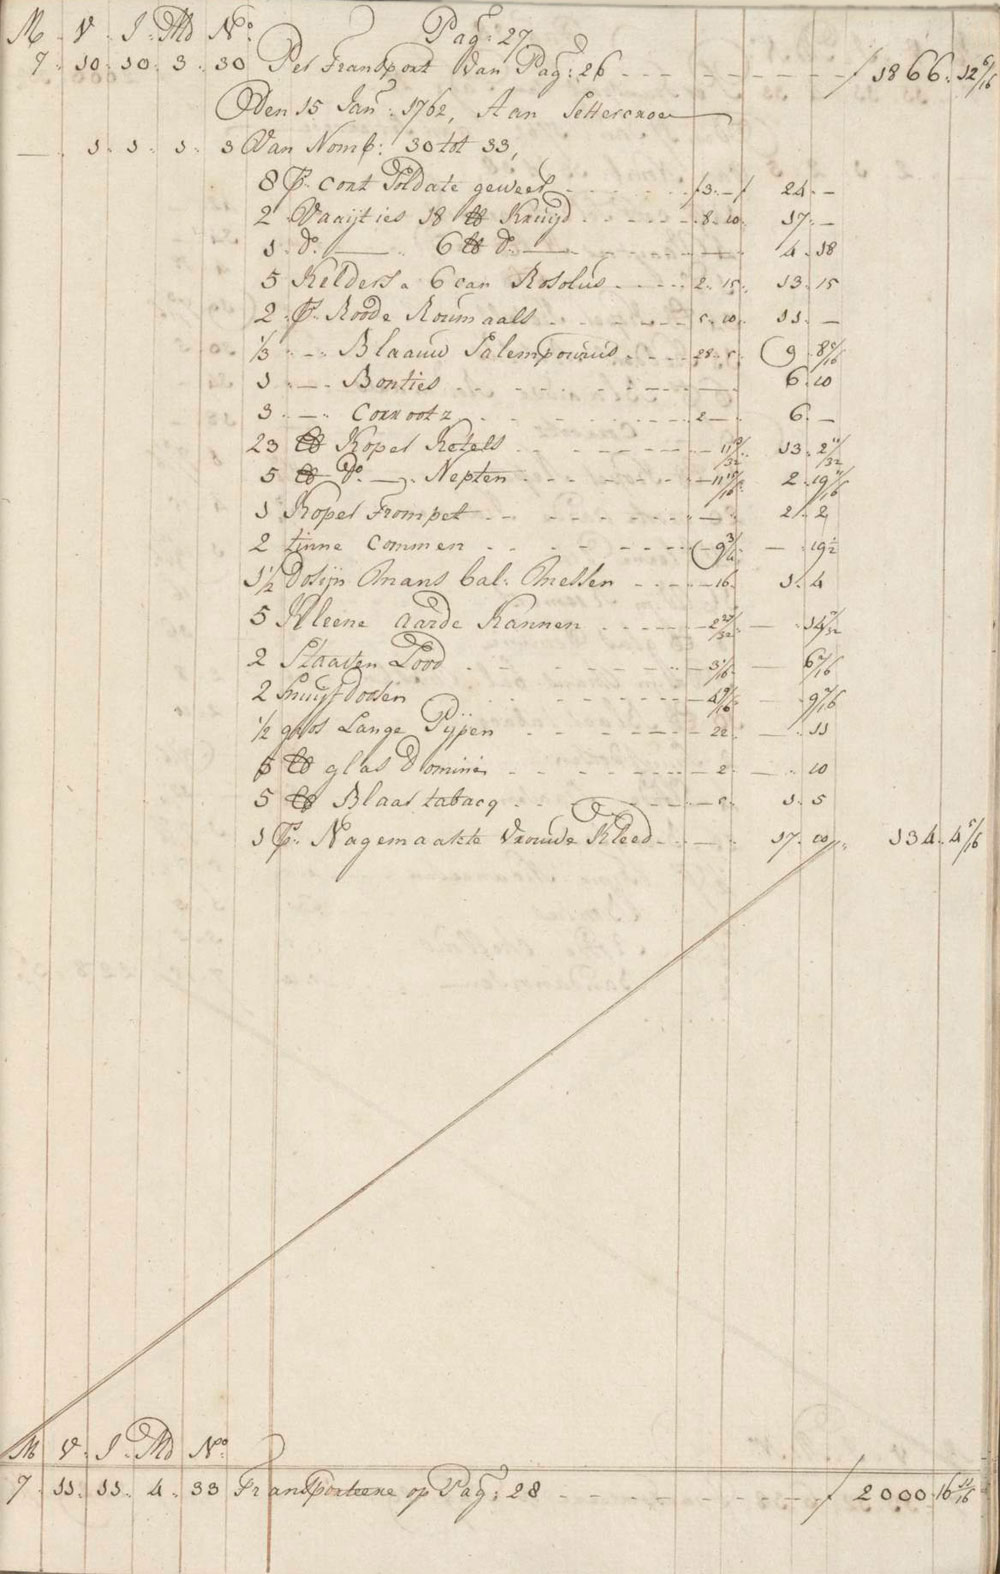 M. V. J. Md N:o Pag: 27
7. 10. 10. 3. 30 Per Transport Van Pag: 26 - - - ƒ 1866. 12 6/16
Den 15 Jan: 1762, Aan Settercroe
— 1. 1. 1. 3 Van Nomb: 30 tot 33,
8 P. cort Soldate geweer - - - ƒ 3.— ƒ 24.—
2 Vaaijties 18 lb Kruijd - - - 8. 10. 17.—
1 d:o — 6 lb d:o — - - - — 4. 18
5 Kelders a 6 can Rosolus - - - 2. 15. 13. 15
2 P. Roode Roumaals - - - 5. 10. 11.—
1/3 .—. Blaauw Salempouris - - - 28. 5. 9. 8 5/16
1 .—. Bonties - - - — 6. 10
3 .—. Corrootz - - - 2.— 6.—
23 lb Koper Ketels - - - — 11 13. 2 11/32
5 lb d:o —. Nepten - - - — 11 15/16. 2. 19 11/16
1 Koper Trompet - - - — 2. 2
2 tinne Commen - - - — 9 3/4. — 19 1/2
1 1/2 Dosijn Mans bal: Messen - - - — 16. 1. 4
5 Kleene aarde Kannen - - - — 2 — 14
2 Staaven Lood - - - — 3 — 6
2 Snuijfdosen - - - — 4 — 9
1/2 gros Lange Pijpen - - - — 22. — 11
5 lb glas - - - — 2. — 10
5 lb Blaar tabacq - - - — 5. 1. 5
1 P. Nagemaakte Vrouwe Kleed - - - — 17. 10. 134. 4 5/16
M. V. J. Md N:o
7. 11. 11. 4. 33 Transporteere op Pag: 28 - - - ƒ 2000. 16 11/16